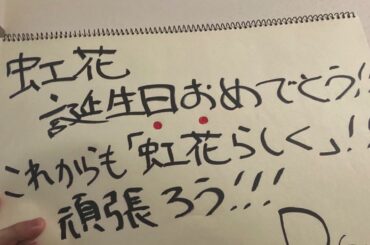 虹花
誕生日おめでとう!!
これからも「虹花らしく」!!
頑張ろう!!!